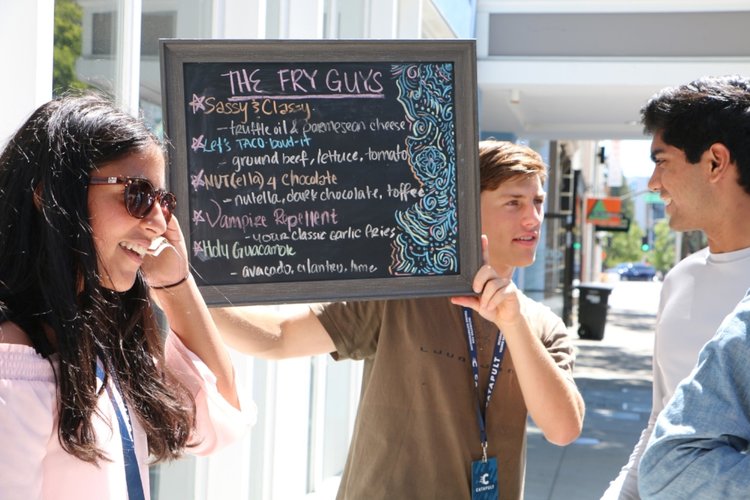 THE FRY GUYS
Sassy & Classy
- truffle oil & parmesean cheese
Let's TACO-bout-it
- ground beef, lettuce, tomato
NUT(ella) 4 Chocolate
- nutella, dark chocolate, toffee
Vampire Repellent
- your classic garlic fries
Holy Guacamole
- avacado, cilantro, lime
CATAPULT
CATAPULT